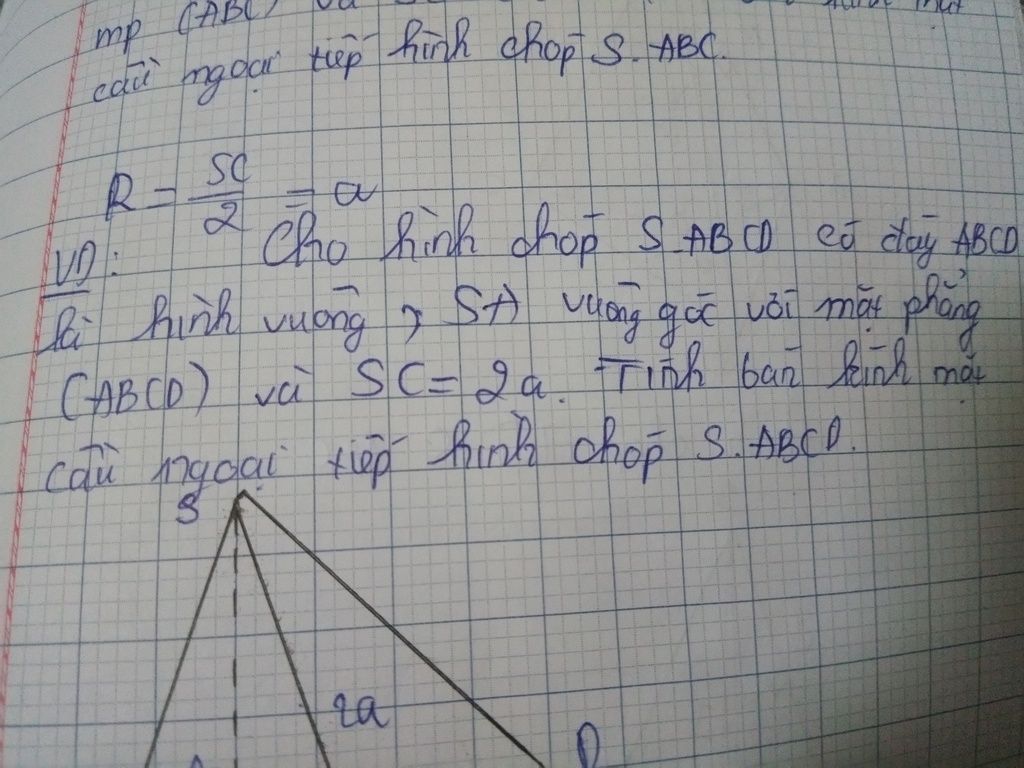 mp (ABC) và
cầu ngoại tiếp hình chóp S.ABC.
R = SC/2 = a
VD: Cho hình chóp S.ABCD có đáy ABCD
là hình vuông, SA vuông góc với mặt phẳng
(ABCD) và SC = 2a. Tính bán kính mặt
cầu ngoại tiếp hình chóp S.ABCD.
S
2a
D
A